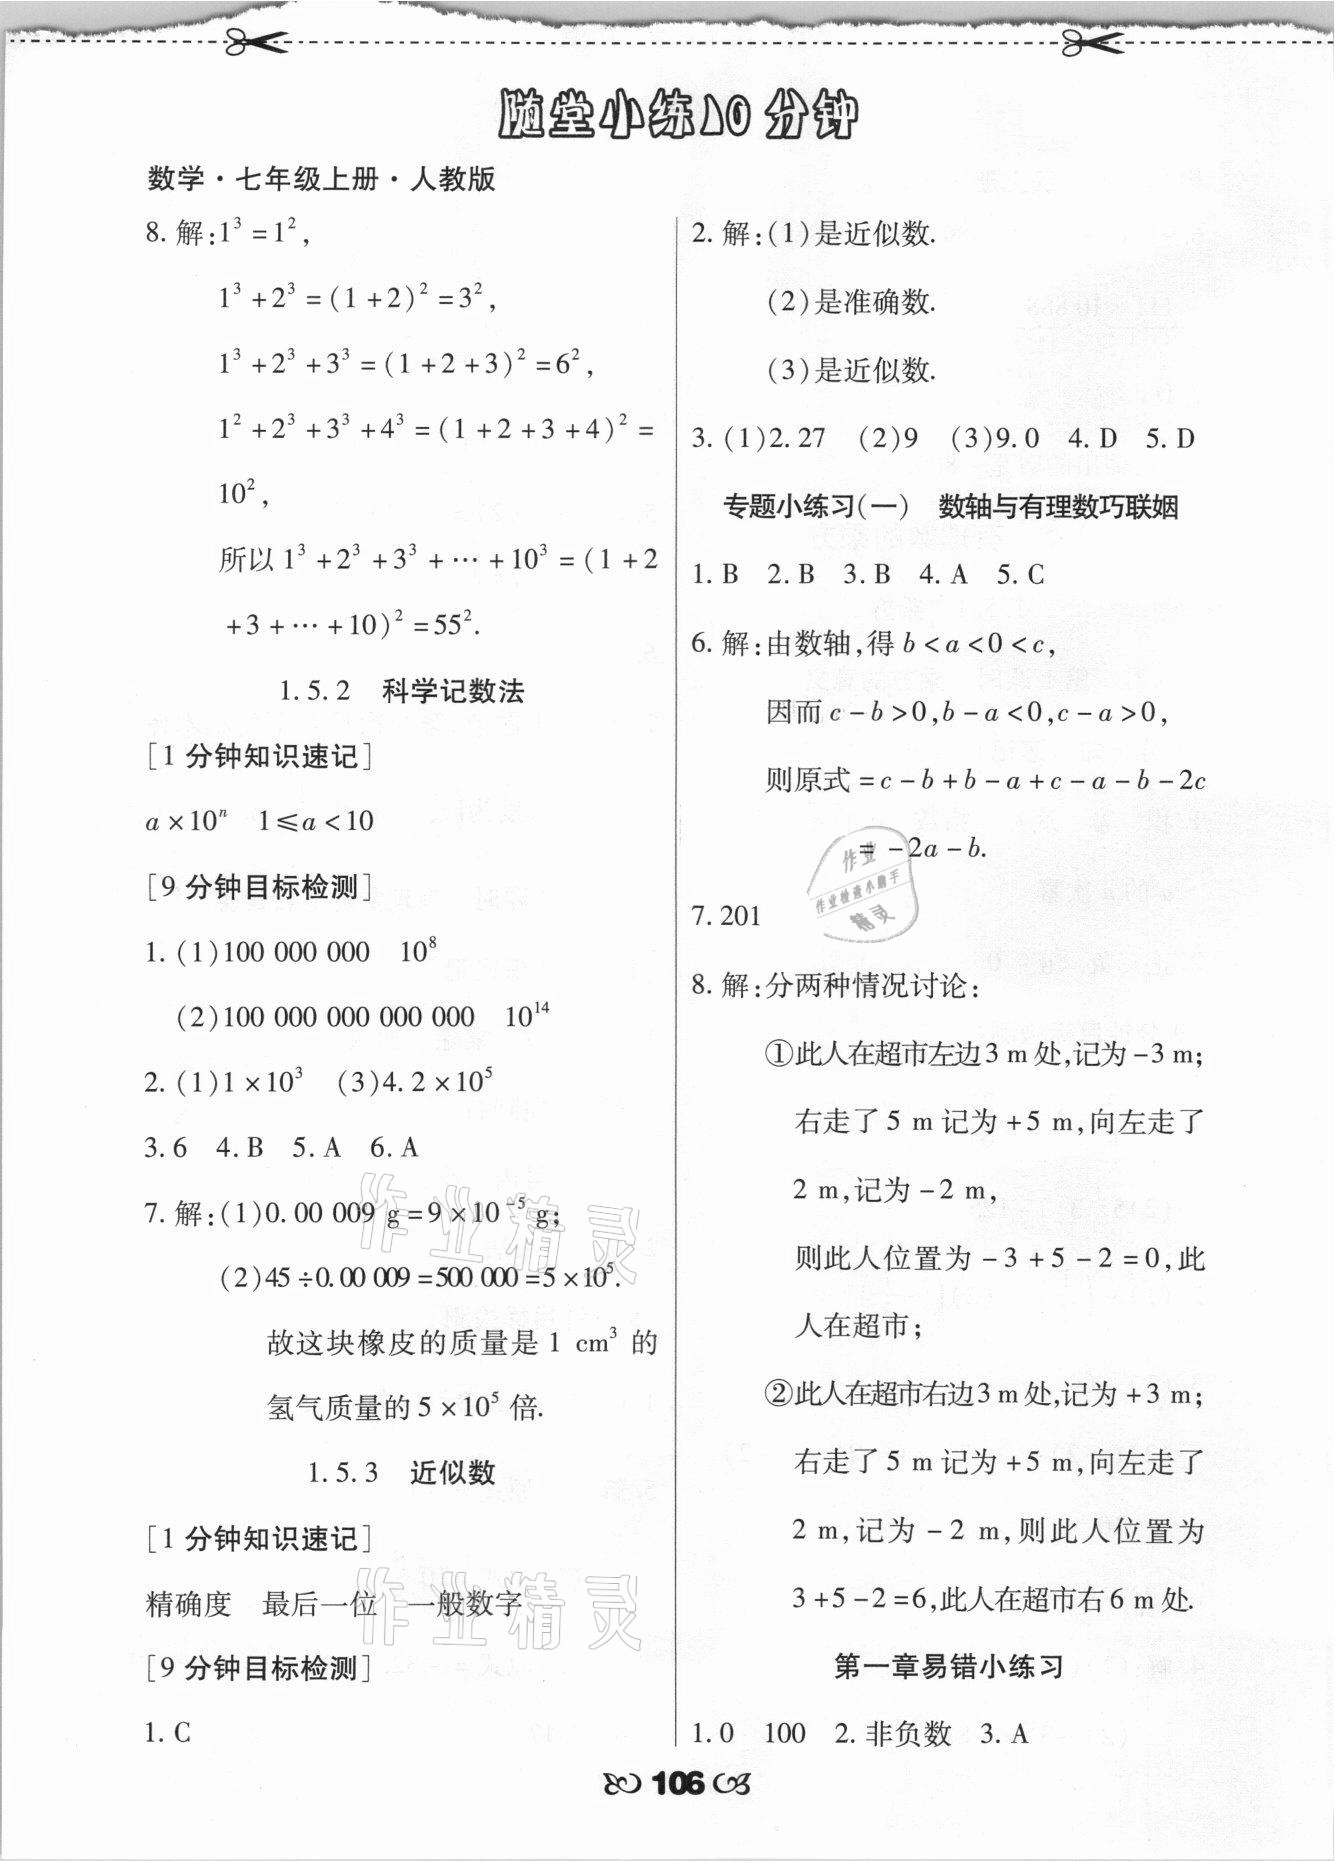 随堂小练10分钟
数学·七年级上册·人教版
8. 解:1³=1²,
1³+2³=(1+2)²=3²,
1³+2³+3³=(1+2+3)²=6²,
1²+2³+3³+4³=(1+2+3+4)²=
10²,
所以1³+2³+3³+…+10³=(1+2
+3+…+10)²=55².
1.5.2 科学记数法
[1分钟知识速记]
a×10ⁿ 1≤a<10
[9分钟目标检测]
1. (1)100 000 000 10⁸
(2)100 000 000 000 000 10¹⁴
2. (1)1×10³ (3)4.2×10⁵
3. 6 4. B 5. A 6. A
7. 解:(1)0.00 009 g=9×10⁻⁵ g;
(2)45÷0.00 009=500 000=5×10⁵.
故这块橡皮的质量是1 cm³的
氢气质量的5×10⁵倍.
1.5.3 近似数
[1分钟知识速记]
精确度 最后一位 一般数字
[9分钟目标检测]
1. C
2. 解:(1)是近似数.
(2)是准确数.
(3)是近似数.
3. (1)2.27 (2)9 (3)9.0 4. D 5. D
专题小练习(一) 数轴与有理数巧联姻
1. B 2. B 3. B 4. A 5. C
6. 解:由数轴,得b<a<0<c,
因而c-b>0,b-a<0,c-a>0,
则原式=c-b+b-a+c-a-b-2c
=-2a-b.
7. 201
8. 解:分两种情况讨论:
①此人在超市左边3 m处,记为-3 m;
右走了5 m记为+5 m,向左走了
2 m,记为-2 m,
则此人位置为-3+5-2=0,此
人在超市;
②此人在超市右边3 m处,记为+3 m;
右走了5 m记为+5 m,向左走了
2 m,记为-2 m,则此人位置为
3+5-2=6,此人在超市右6 m处.
第一章易错小练习
1. 0 100 2. 非负数 3. A
106
作业精灵
作业精灵
作业
作业检查小助手
精灵